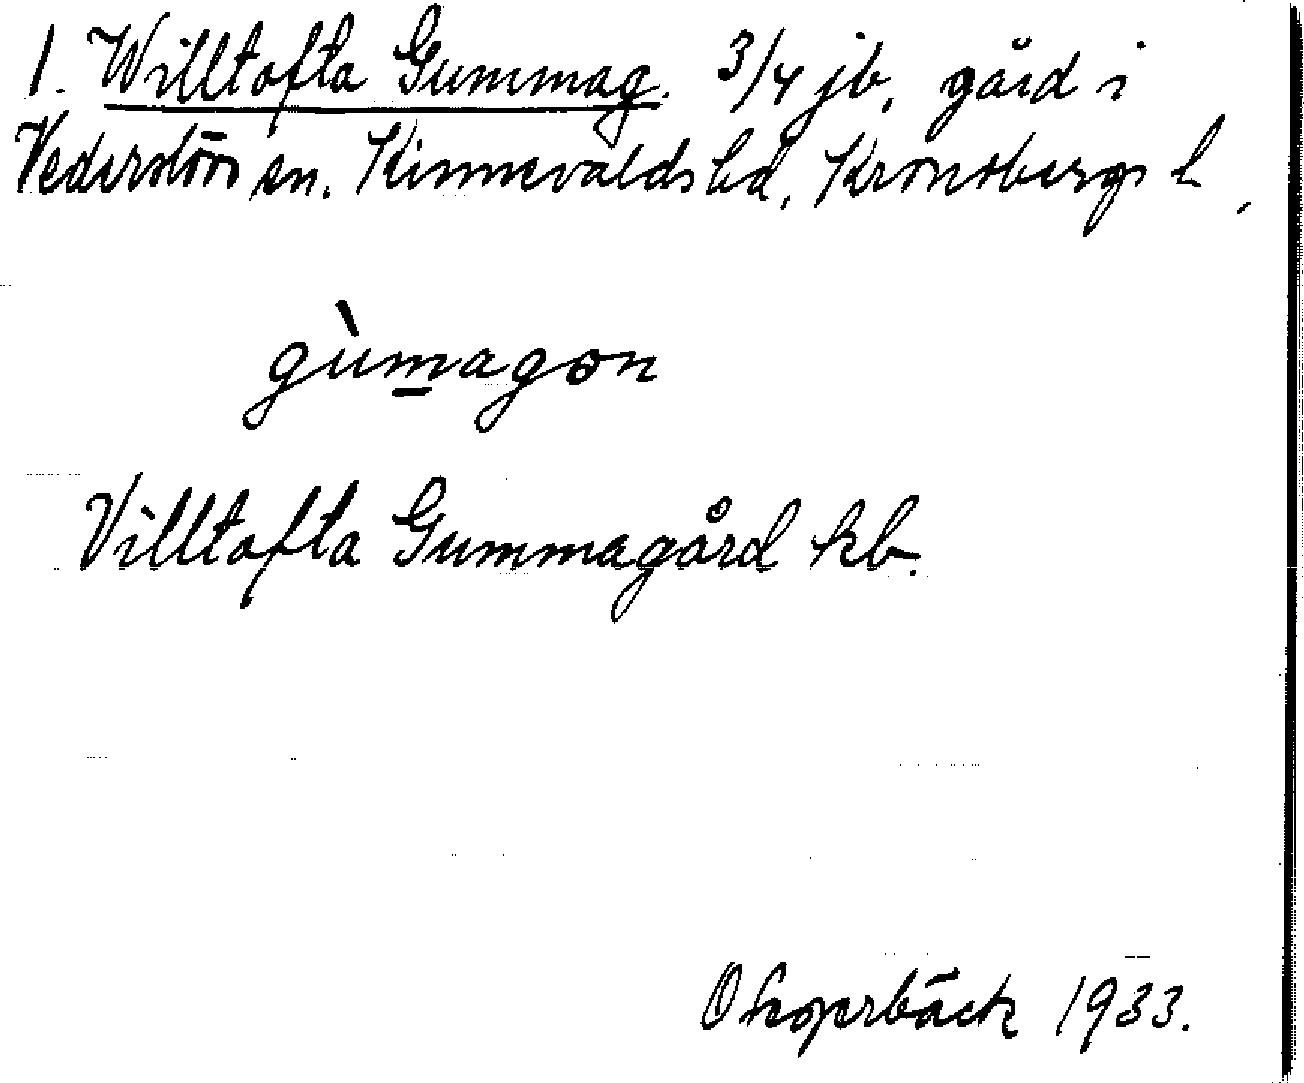 1. Willtofta Gummag. 3/4 jb. gård i
Vederslövs sn. Kinnevalds hd, Kronobergs l.
gùm̲agɵn
Villtofta Gummagård kb.
O Hagerbäck 1933.